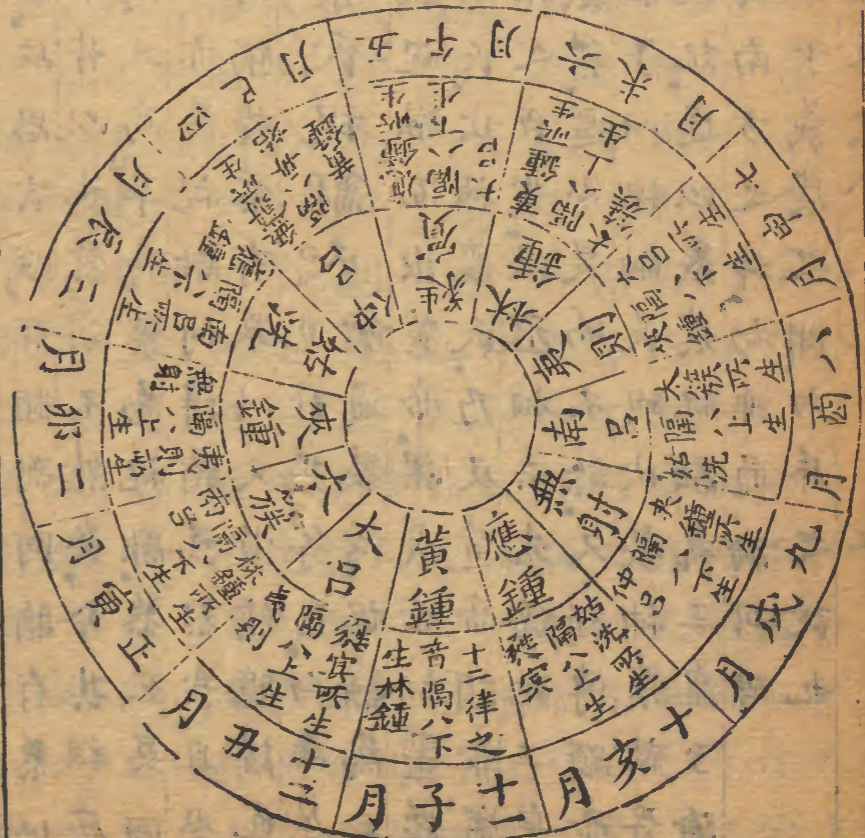 十一子月
黃鍾
十二律之
音隔八下
生林鍾
十二丑月
大呂
蕤賓所生
隔八上生
夷則
正寅月
太簇
林鍾所生
隔八下生
南呂
二卯月
夾鍾
夷則所生
隔八上生
無射
三辰月
姑洗
南呂所生
隔八下生
應鍾
四巳月
仲呂
無射所生
隔八
黃鍾
五午月
蕤賓
應鍾所生
隔八下生
大呂
六未月
林鍾
黃鍾所生
隔八上生
太簇
七申月
夷則
大呂所生
隔八下生
夾鍾
八酉月
南呂
太簇所生
隔八上生
姑洗
九戌月
無射
夾鍾所生
隔八下生
仲呂
十亥月
應鍾
姑洗所生
隔八上生
蕤賓